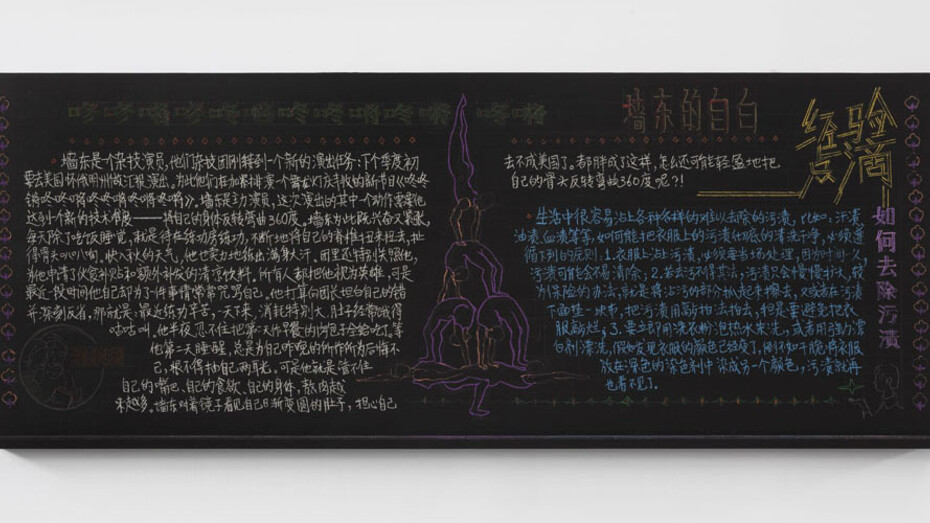 咚咚咚咚咚锵咚咚锵咚锵咚锵
墙东的自白
墙东是个杂技演员,他们杂技团刚接到一个新的演出任务:下个季度初
要去美国怀俄明州做汇报演出。为此他们在加紧排演一个舞龙灯庆丰收的新节目《咚咚
锵咚咚咚锵咚锵咚锵》,墙东是主力演员,这次演出的其中一个动作需要他
达到一个新的技术难度——将自己的身体反转弯曲360度。墙东为此既兴奋又紧张,
每天除了吃饭睡觉,就是待在练功房练功,不断地将自己的脊椎扭来扭去,扯
得骨头叭叭响,快入秋的天气,他也卖力地练出满身汗。团里还特别关照他,
为他申请了伙食补贴和额外补发的清凉饮料。所有人都把他视为英雄。可是
最近一段时间他自己却为了一件事情常常咒骂自己。他打算向团长坦白自己的错
并深刻反省,那就是:最近练功辛苦,一天下来,消耗特别大,肚子经常饿得
咕咕叫,他半夜忍不住把第二天作早餐的肉包子全给吃了。等
他第二天睡醒,总是为自己昨晚的所作所为后悔不
已,恨不得抽自己两耳光。可是他就是管不住
自己的嘴巴、自己的食欲、自己的身体,熬肉越
来越多。墙东对着镜子看见自己日渐变圆的肚子,担心自己
去不成美国了。都胖成了这样,怎么还可能轻盈地把
自己的骨头反转弯曲360度呢?!
经验
点滴
如何去除污渍
生活中很容易沾上各种各样的难以去除的污渍,比如:汗渍
油渍、血渍等等,如何能把衣服上的污渍彻底的清洗干净,必须遵
循下列的原则:1.衣服上沾上污渍,必须要当场处理,因为时间一久,
污渍可能会不易清除;2.若去污不得其法,污渍只会慢慢扩大,较
为保险的办法,就是将沾污的部分扒起来擦去,又或者在污渍
下面垫一块布,把污渍用刷拍去拍去,但是要避免把衣
服刷烂。3.要立即用洗衣粉泡热水来洗,或者用强力漂
白剂漂洗,假如发现衣服的颜色已经废了,倒不如干脆将衣服
放在深色的染色剂中染成另一个颜色,污渍就再
也看不见了。